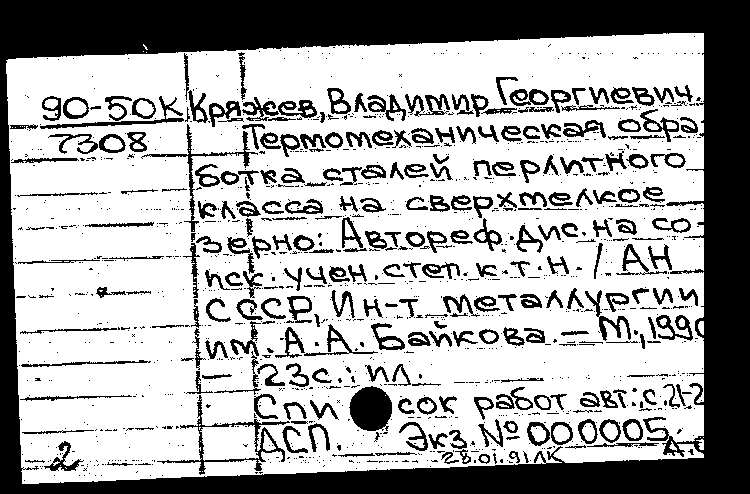 90-50К Кряжев, Владимир Георгиевич.
7308 Термомеханическая обра-
ботка сталей перлитного
класса на сверхмелкое
зерно: Автореф.дис.на со-
иск.учен.степ.к.т.н. / АН
СССР, Ин-т металлургии
им. А.А. Байкова. — М., 1990
— 23с.: ил.
Список работ авт.: с.21-2
ДСП. Экз. № 000005.
2 28.01.91ЛК